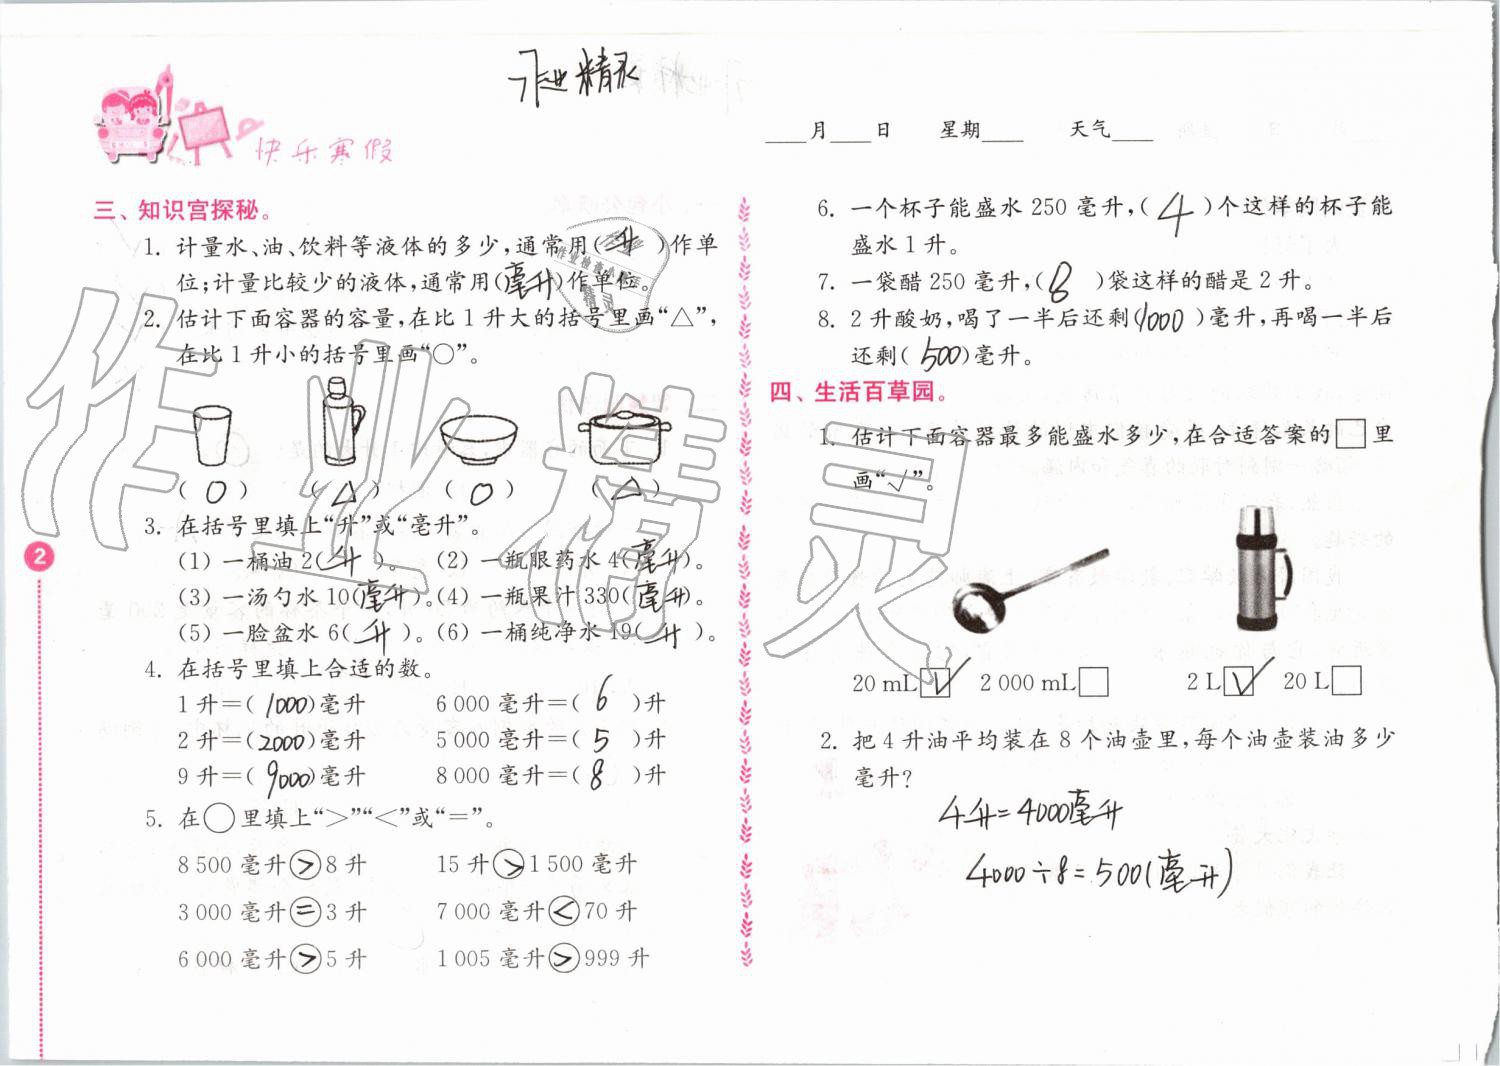 作业精灵
快乐寒假
____月____日 星期____ 天气____
三、知识宫探秘。
1. 计量水、油、饮料等液体的多少,通常用(升)作单
位;计量比较少的液体,通常用(毫升)作单位。
2. 估计下面容器的容量,在比1升大的括号里画“△”,
在比1升小的括号里画“○”。
(○) (△) (○) (△)
3. 在括号里填上“升”或“毫升”。
(1) 一桶油2(升)。 (2) 一瓶眼药水4(毫升)。
(3) 一汤勺水10(毫升)。 (4) 一瓶果汁330(毫升)。
(5) 一脸盆水6(升)。 (6) 一桶纯净水19(升)。
4. 在括号里填上合适的数。
1升=(1000)毫升 6 000毫升=(6)升
2升=(2000)毫升 5 000毫升=(5)升
9升=(9000)毫升 8 000毫升=(8)升
5. 在○里填上“>”“<”或“=”。
8 500毫升>8升 15升>1 500毫升
3 000毫升=3升 7 000毫升<70升
6 000毫升>5升 1 005毫升>999升
2
6. 一个杯子能盛水250毫升,(4)个这样的杯子能
盛水1升。
7. 一袋醋250毫升,(8)袋这样的醋是2升。
8. 2升酸奶,喝了一半后还剩(1000)毫升,再喝一半后
还剩(500)毫升。
四、生活百草园。
1. 估计下面容器最多能盛水多少,在合适答案的□里
画“√”。
20 mL☑ 2 000 mL□ 2 L☑ 20 L□
2. 把4升油平均装在8个油壶里,每个油壶装油多少
毫升?
4升=4000毫升
4000÷8=500(毫升)
作业精灵